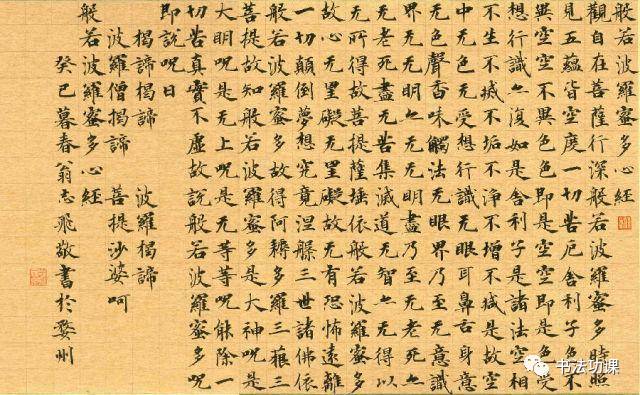 般若波羅蜜多心經
觀自在菩薩行深般若波羅蜜多時照
見五蘊皆空度一切苦厄舍利子色不
異空空不異色色即是空空即是色受
想行識亦復如是舍利子是諸法空相
不生不滅不垢不淨不增不減是故空
中无色无受想行識无眼耳鼻舌身意
无色聲香味觸法无眼界乃至无意識
界无无明亦无无明盡乃至无老死亦
无老死盡无苦集滅道无智亦无得以
无所得故菩提薩埵依般若波羅蜜多
故心无罣礙无罣礙故无有恐怖遠離
一切顛倒夢想究竟涅槃三世諸佛依
般若波羅蜜多故得阿耨多羅三藐三
菩提故知般若波羅蜜多是大神呪是
大明呪是无上呪是无等等呪能除一
切苦真實不虛故說般若波羅蜜多呪
即說呪曰
揭諦揭諦 波羅揭諦
波羅僧揭諦 菩提沙婆呵
般若波羅蜜多心經
癸巳暮春翁志飛敬書於婺州
书法功课